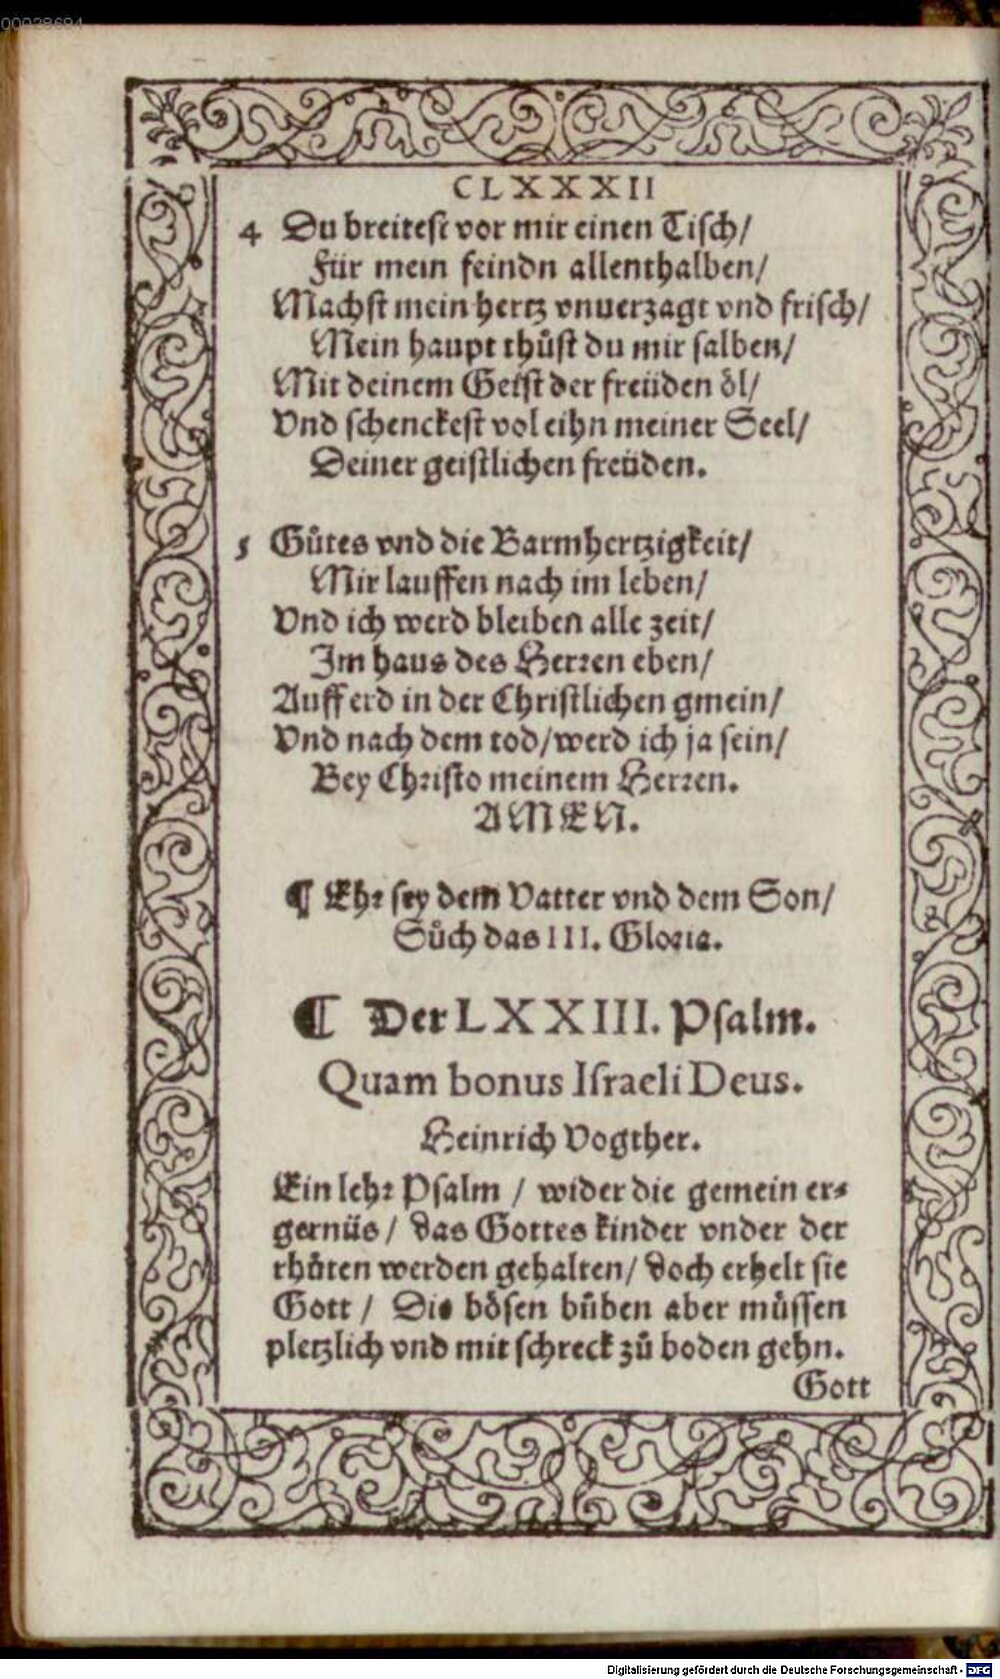 00028694
CLXXXII
4 Du breitest vor mir einen Tisch/
Für mein feindn allenthalben/
Machst mein hertz vnuerzagt vnd frisch/
Mein haupt thůst du mir salben/
Mit deinem Geist der freüden öl/
Vnd schenckest vol eihn meiner Seel/
Deiner geistlichen freüden.
5 Gůtes vnd die Barmhertzigkeit/
Mir lauffen nach im leben/
Vnd ich werd bleiben alle zeit/
Im haus des Herren eben/
Auff erd in der Christlichen gmein/
Vnd nach dem tod/werd ich ja sein/
Bey Christo meinem Herren.
AMEN.
¶ Ehr sey dem Vatter vnd dem Son/
Sůch das III. Gloria.
¶ Der LXXIII. Psalm.
Quam bonus Iſraeli Deus.
Heinrich Vogther.
Ein lehr Psalm / wider die gemein er⸗
gernüs / das Gottes kinder vnder der
rhůten werden gehalten/ doch erhelt sie
Gott / Die bösen bůben aber müssen
pletzlich vnd mit schreck zů boden gehn.
Gott
Digitalisierung gefördert durch die Deutsche Forschungsgemeinschaft - DFG